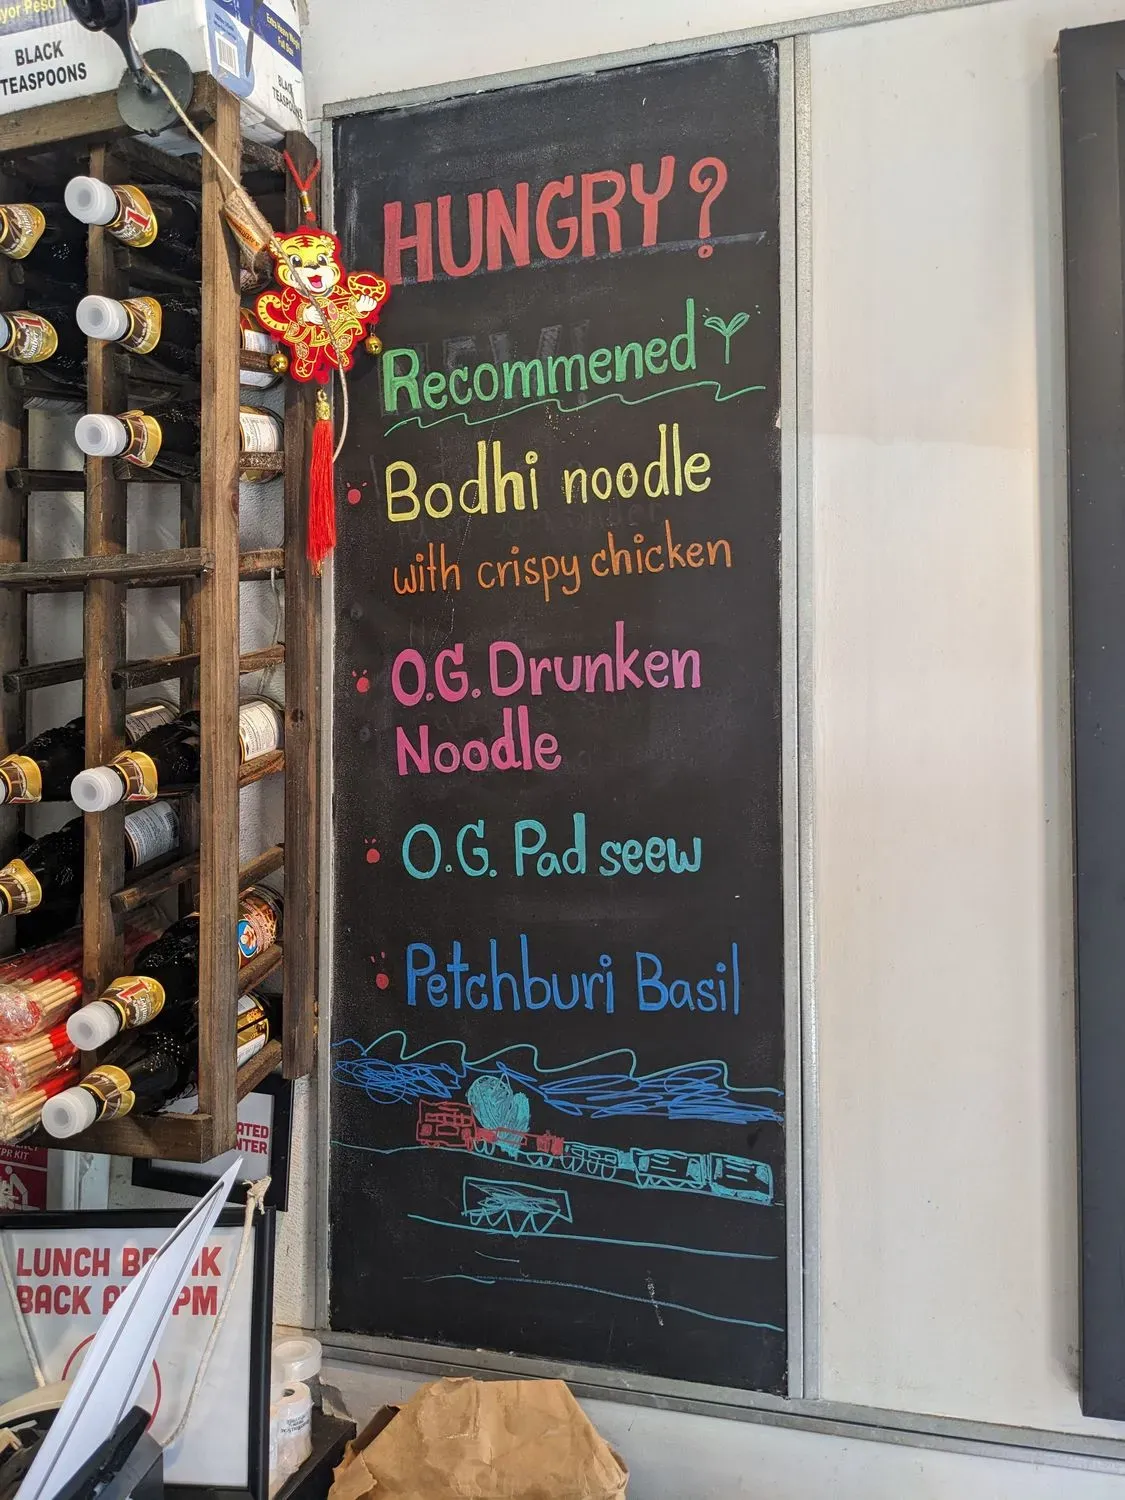 BLACK
TEASPOONS
HUNGRY?
Recommened
Bodhi noodle
with crispy chicken
O.G. Drunken
Noodle
O.G. Pad seew
Petchburi Basil
LUNCH
BACK
PM